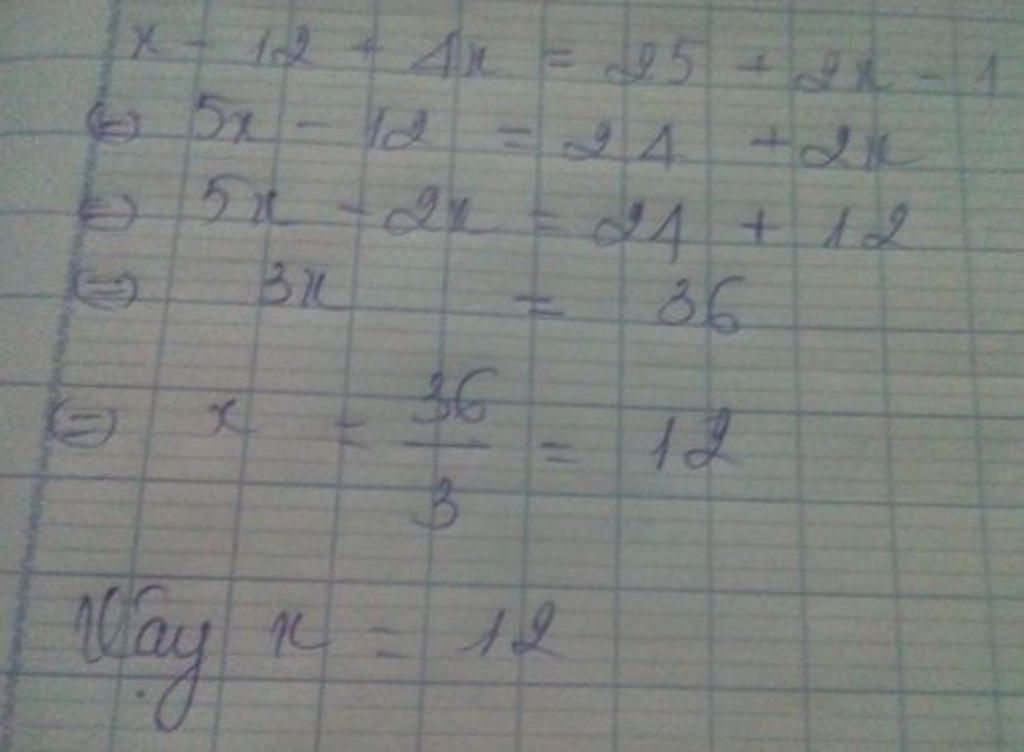 x - 12 + 4x = 25 + 2x - 1
⇔ 5x - 12 = 24 + 2x
⇔ 5x - 2x = 24 + 12
⇔ 3x = 36
⇔ x = 36/3 = 12
Vậy x = 12